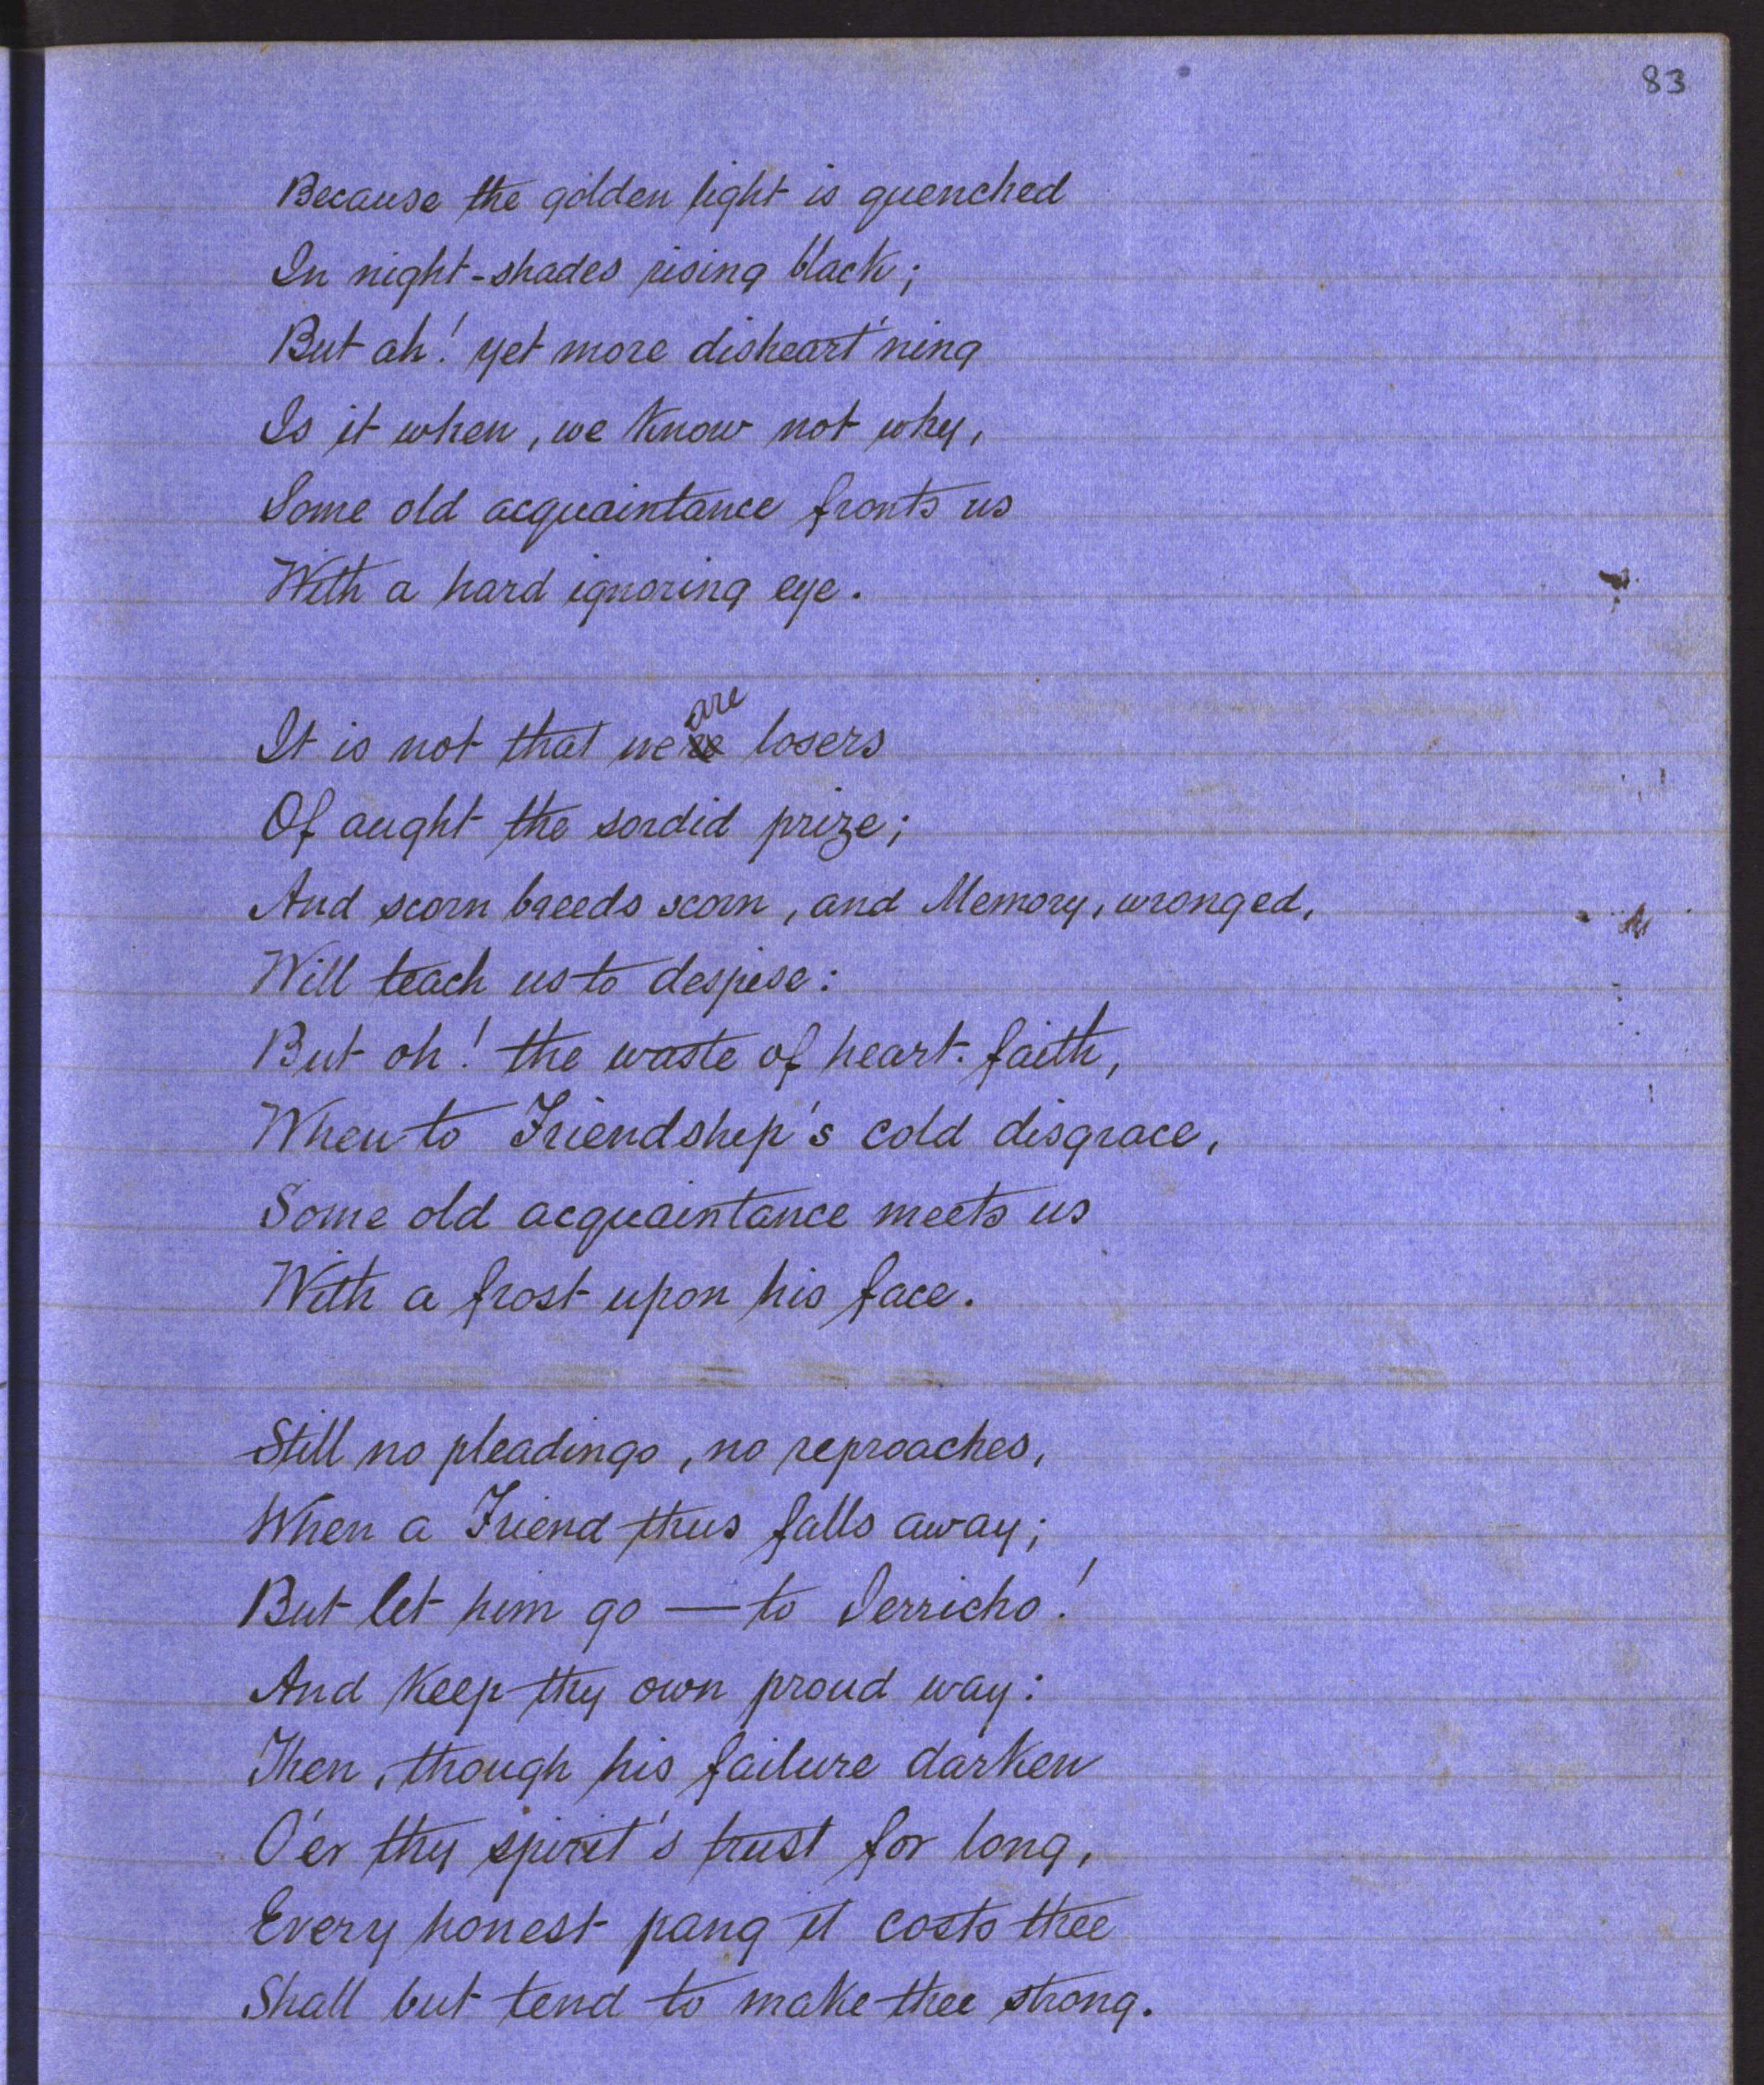 83
Because the golden light is quenched
In night-shades rising black;
But ah! yet more disheart'ning
Is it when, we know not why,
Some old acquaintance fronts us
With a hard ignoring eye.
It is not that we are losers
Of aught the sordid prize;
And scorn breeds scorn, and Memory, wronged,
Will teach us to despise:
But oh! the waste of heart-faith,
When to Friendship's cold disgrace,
Some old acquaintance meets us
With a frost upon his face.
Still no pleadings, no reproaches,
When a Friend thus falls away;
But let him go — to Jerricho!
And keep thy own proud way:
Then, though his failure darken
O'er thy spirit's trust for long,
Every honest pang it costs thee
Shall but tend to make thee strong.